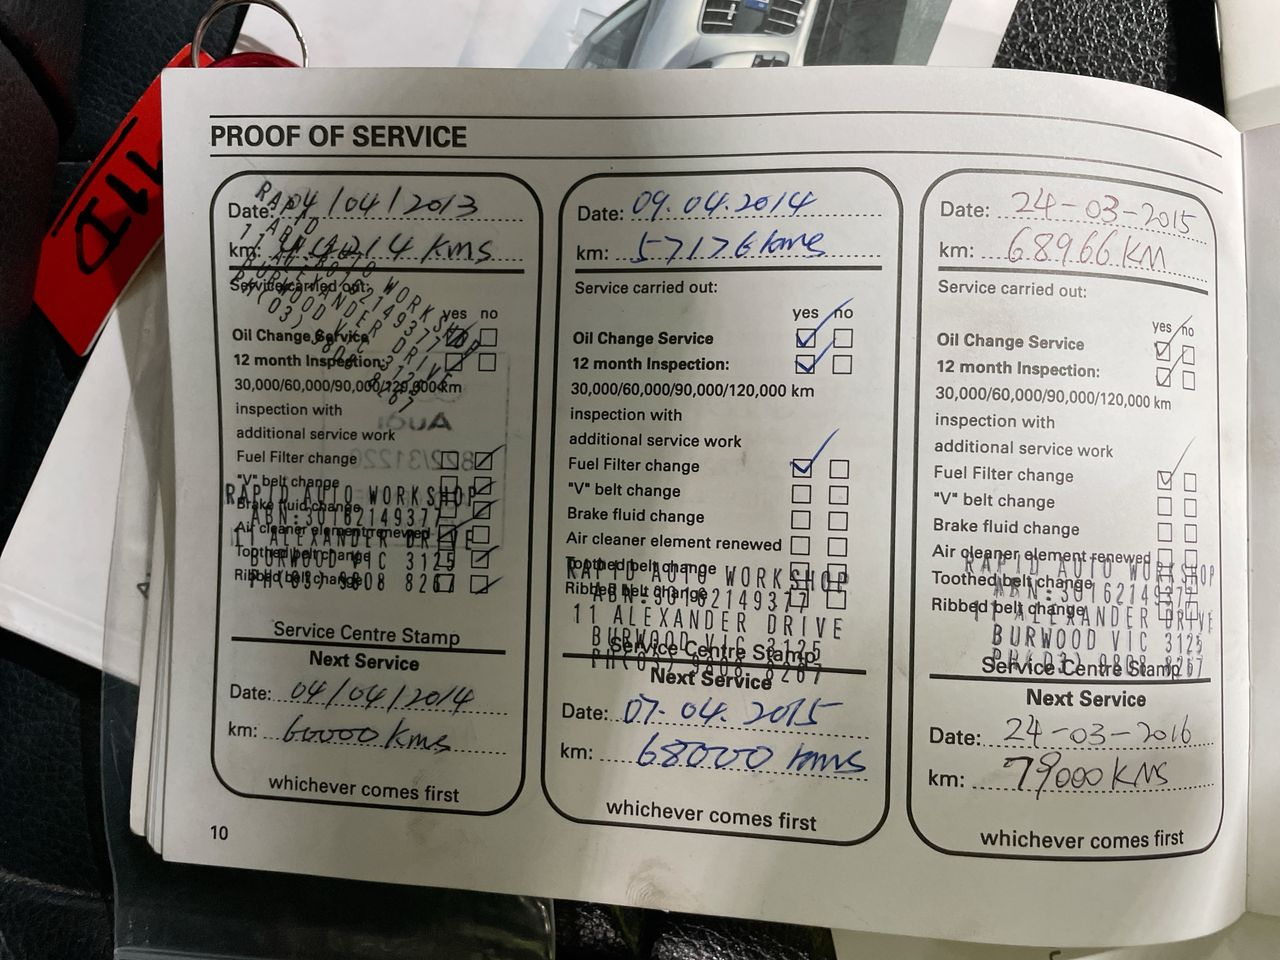 11D
PROOF OF SERVICE
Date: 04/04/2013
km: kms
Service carried out:
yes no
Oil Change Service
12 month Inspection:
30,000/60,000/90,000/120,000 km
inspection with
additional service work
Fuel Filter change
"V" belt change
Brake fluid change
Air cleaner element renewed
Toothed belt change
Ribbed belt change
RAPID AUTO WORKSHOP
ABN:30162149377
11 ALEXANDER DRIVE
BURWOOD VIC 3125
PH(03) 9808 8267
RAPID AUTO WORKSHOP
ABN:30162149377
11 ALEXANDER DRIVE
BURWOOD VIC 3125
PH(03) 9808 8267
Audi
Service Centre Stamp
Next Service
Date: 04/04/2014
km: 60000 kms
whichever comes first
Date: 09.04.2014
km: 57176 kms
Service carried out:
yes no
Oil Change Service
12 month Inspection:
30,000/60,000/90,000/120,000 km
inspection with
additional service work
Fuel Filter change
"V" belt change
Brake fluid change
Air cleaner element renewed
Toothed belt change
Ribbed belt change
RAPID AUTO WORKSHOP
ABN:30162149377
11 ALEXANDER DRIVE
BURWOOD VIC 3125
PH(03) 9808 8267
Service Centre Stamp
Next Service
Date: 07.04.2015
km: 68000 kms
whichever comes first
Date: 24-03-2015
km: 68966 KM
Service carried out:
yes no
Oil Change Service
12 month Inspection:
30,000/60,000/90,000/120,000 km
inspection with
additional service work
Fuel Filter change
"V" belt change
Brake fluid change
Air cleaner element renewed
Toothed belt change
Ribbed belt change
RAPID AUTO WORKSHOP
ABN:30162149377
11 ALEXANDER DRIVE
BURWOOD VIC 3125
PH(03) 9808 8267
Service Centre Stamp
Next Service
Date: 24-03-2016
km: 79000 KMS
whichever comes first
10